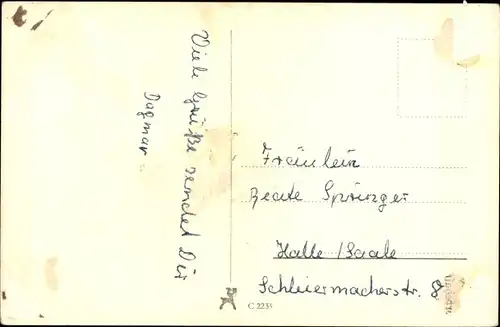 Viele Grüße sendet Dir
Dagmar
Fräulein
Beate Springer
Halle /Saale
Schleiermacherstr. 8
C 2235